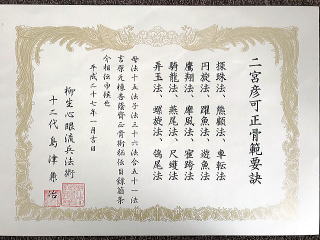 二宮彦可正骨範要訣
探珠法、熊顧法、車転法
円旋法、躍魚法、遊魚法
鷹翔法、摩風法、靠跨法
騎龍法、燕尾法、尺蠖法
弄玉法、螺旋法、鴿尾法
母法十五法子法三十六法合五十一法
今相伝申候也
平成二十七年一月吉日
柳生心眼流兵法術
十二代 島津兼治